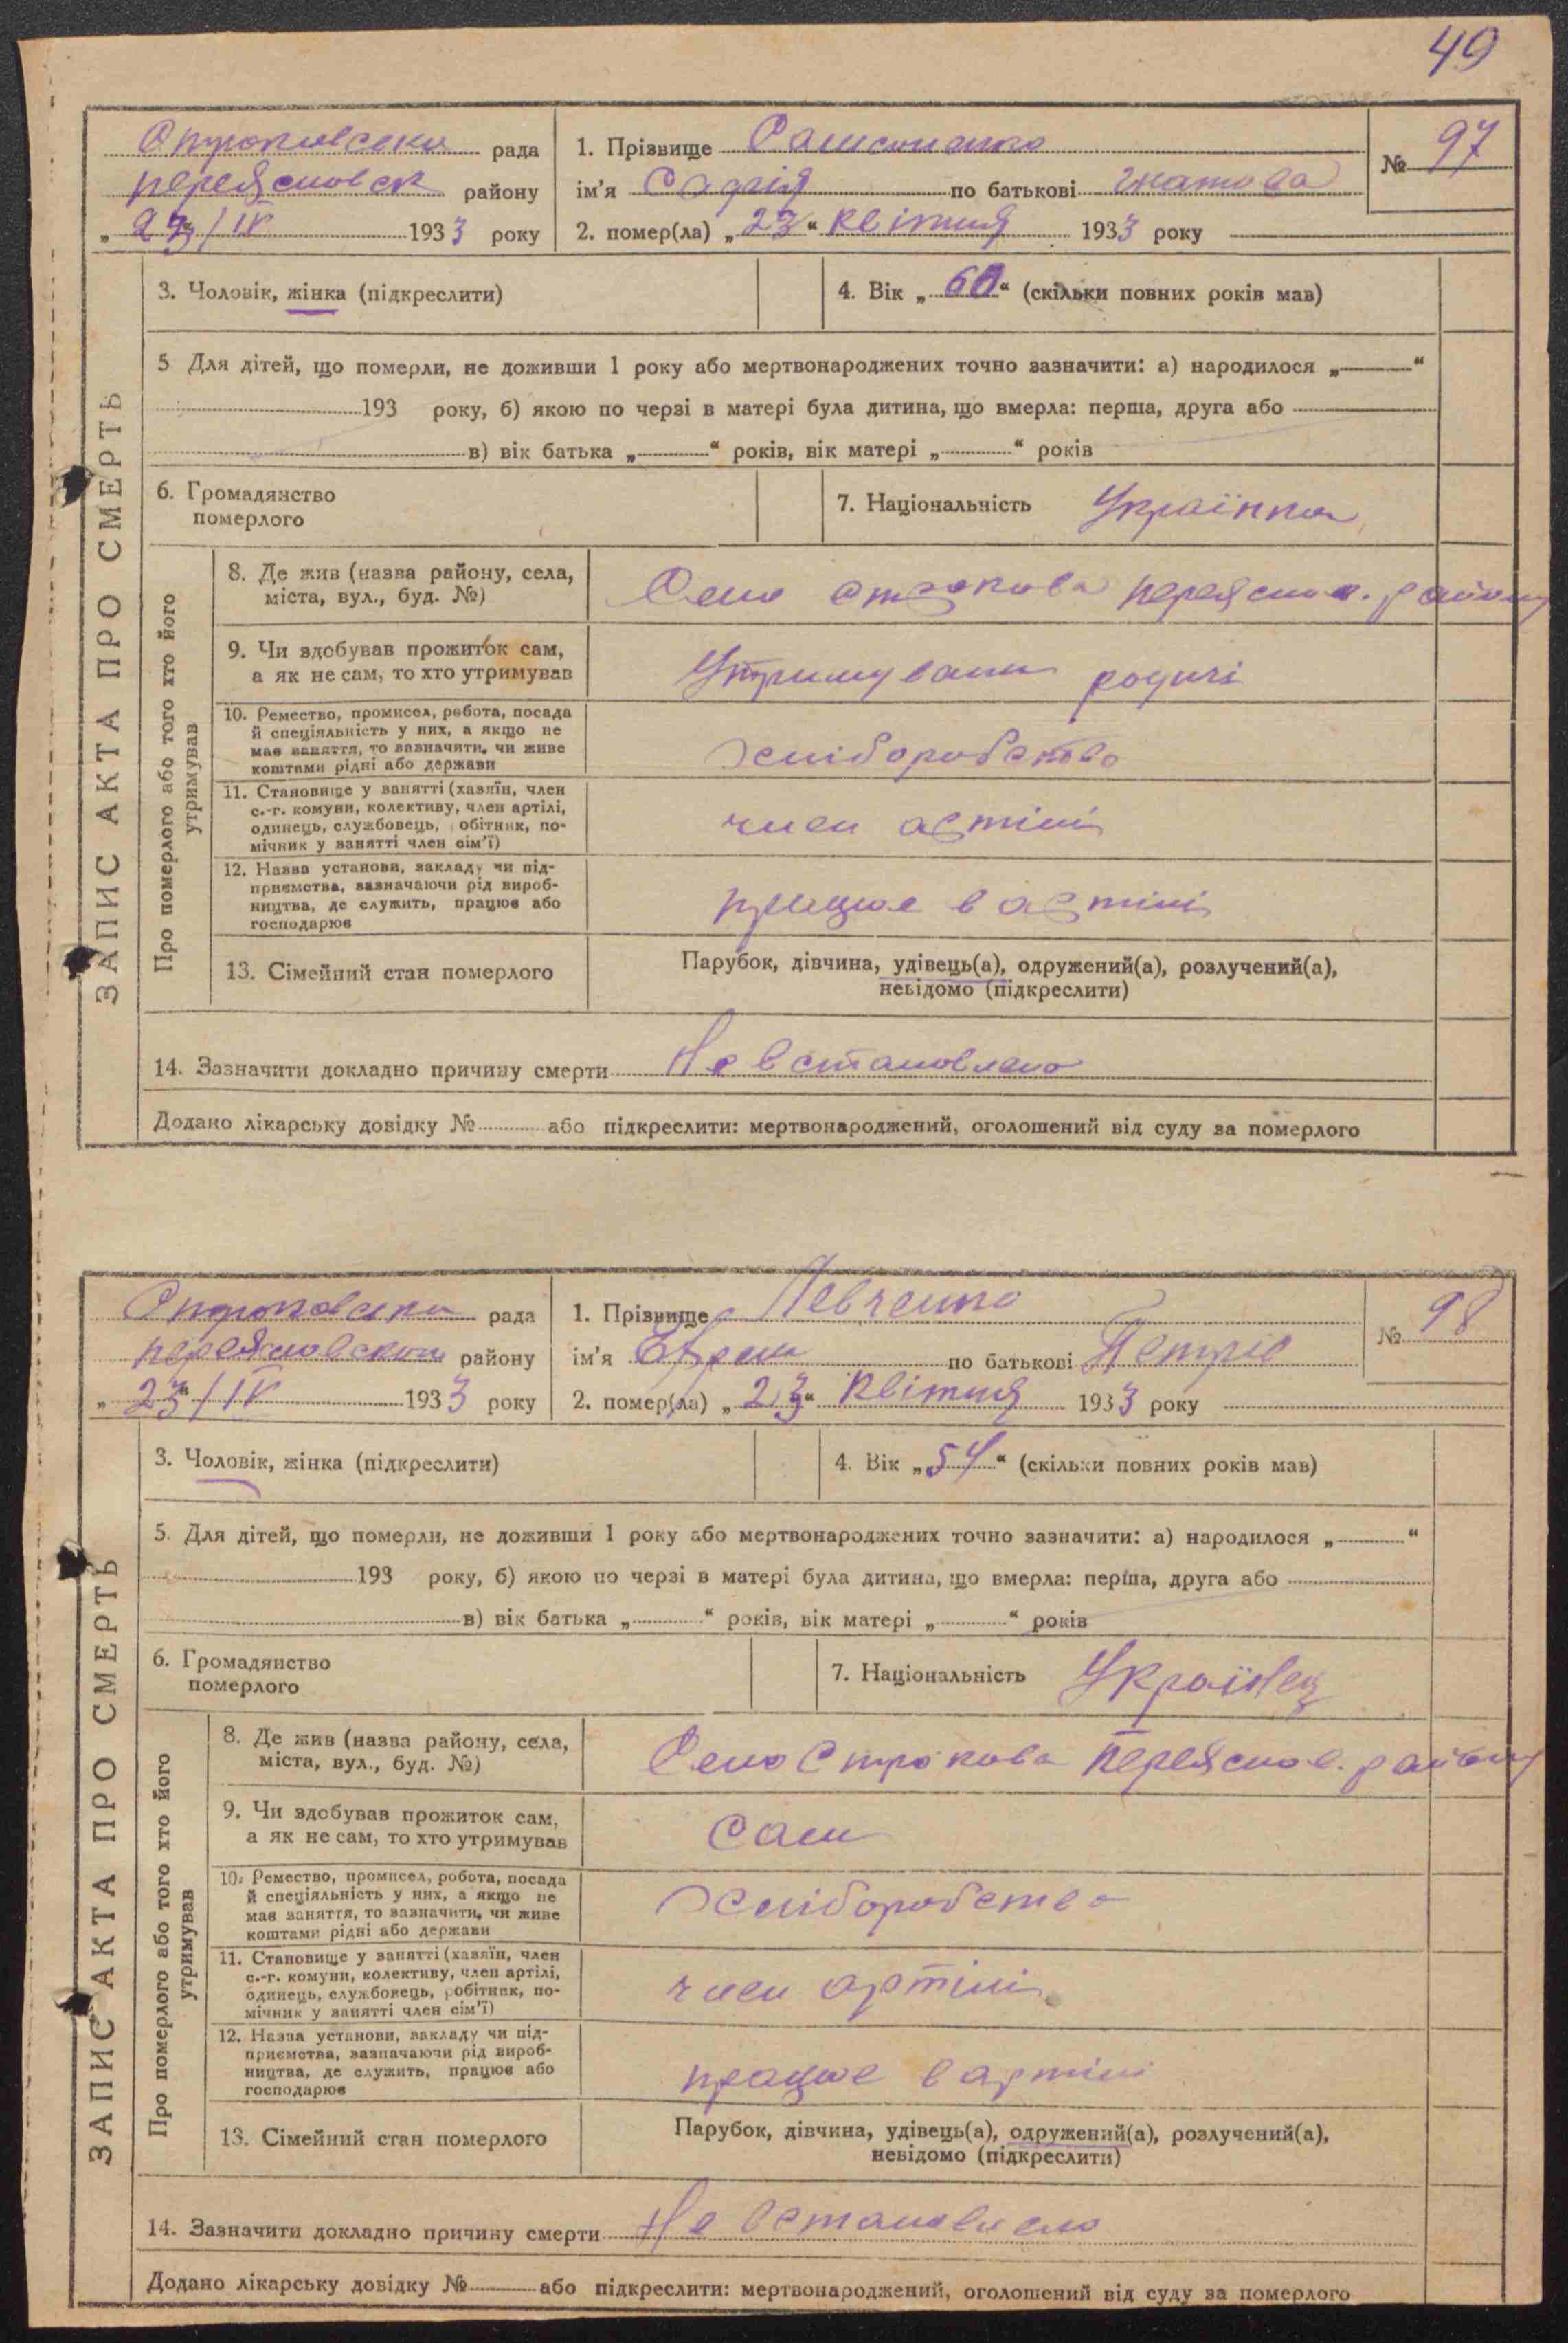 49
ЗАПИС АКТА ПРО СМЕРТЬ
рада
переясловск району
"23/IV 1933 року
1. Прізвище
ім'я Софія по батькові Гнатова
2. помер(ла) „23“ квітня 1933 року
№ 97
3. Чоловік, жінка (підкреслити)
4. Вік „60“ (скільки повних років мав)
5 Для дітей, що померли, не доживши 1 року або мертвонароджених точно зазначити: а) народилося „ “
193 року, б) якою по черзі в матері була дитина, що вмерла: перша, друга або
в) вік батька „ “ років, вік матері „ “ років
6. Громадянство
померлого
7. Національність Українка
Про померлого або того хто його
утримував
8. Де жив (назва району, села,
міста, вул., буд. №)
Село Строкова переяслов. району
9. Чи здобував прожиток сам,
а як не сам, то хто утримував
Утримували родичі
10. Ремество, промисел, робота, посада
й спеціяльність у них, а якщо не
має заняття, то зазначити, чи живе
коштами рідні або держави
Хліборобство
11. Становище у занятті (хазяїн, член
с.-г. комуни, колективу, член артілі,
одинець, службовець, обітник, по-
мічник у занятті член сім'ї)
член артілі
12. Назва установи, закладу чи під-
приємства, зазначаючи рід вироб-
ництва, де служить, працює або
господарює
працює в артілі
13. Сімейний стан померлого
Парубок, дівчина, удівець(а), одружений(а), розлучений(а),
невідомо (підкреслити)
14. Зазначити докладно причину смерти Не встановлено
Додано лікарську довідку № або підкреслити: мертвонароджений, оголошений від суду за померлого
ЗАПИС АКТА ПРО СМЕРТЬ
рада
переясловском району
"23/IV 1933 року
1. Прізвище Левченко
ім'я Єфрем по батькові Петрів
2. помер(ла) „23“ квітня 1933 року
№ 98
3. Чоловік, жінка (підкреслити)
4. Вік „54“ (скільки повних років мав)
5. Для дітей, що померли, не доживши 1 року або мертвонароджених точно зазначити: а) народилося „ “
193 року, б) якою по черзі в матері була дитина, що вмерла: перша, друга або
в) вік батька „ “ років, вік матері „ “ років
6. Громадянство
померлого
7. Національність Українец
Про померлого або того хто його
утримував
8. Де жив (назва району, села,
міста, вул., буд. №)
Село Строкова Переяслов. району
9. Чи здобував прожиток сам,
а як не сам, то хто утримував
Сам
10. Ремество, промисел, робота, посада
й спеціяльність у них, а якщо не
має заняття, то зазначити, чи живе
коштами рідні або держави
Хліборобство
11. Становище у занятті (хазяїн, член
с.-г. комуни, колективу, член артілі,
одинець, службовець, робітник, по-
мічник у занятті член сім'ї)
член артілі
12. Назва установи, закладу чи під-
приємства, зазначаючи рід вироб-
ництва, де служить, працює або
господарює
працює в артілі
13. Сімейний стан померлого
Парубок, дівчина, удівець(а), одружений(а), розлучений(а),
невідомо (підкреслити)
14. Зазначити докладно причину смерти Не встановлено
Додано лікарську довідку № або підкреслити: мертвонароджений, оголошений від суду за померлого